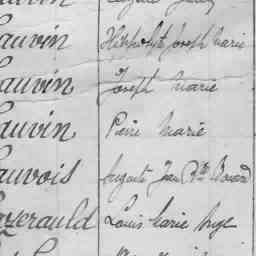 auvin Hippolyte Joseph Marie
auvin Joseph Marie
auvin Pierre Marie
auvois Auguste Jean
zerauld Louis Marie Ange